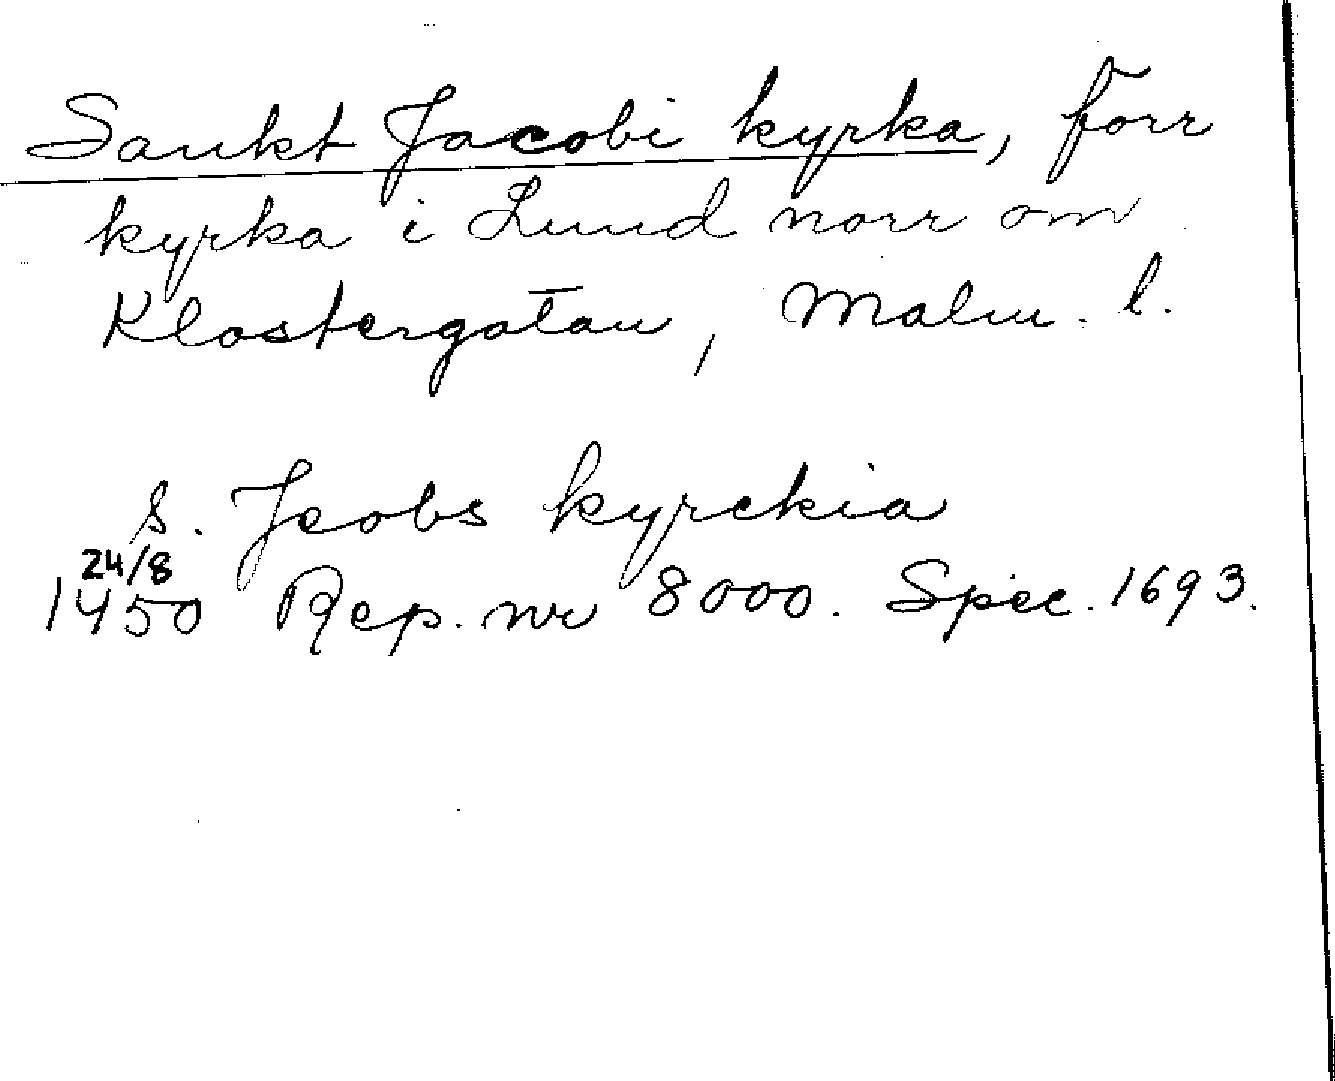 Sankt Jacobi kyrka, förr
kyrka i Lund norr om
Klostergatan, Malm. l.
S. Jcobs kyrckia
24/8
1450 Rep. nr 8000. Spec. 1693.